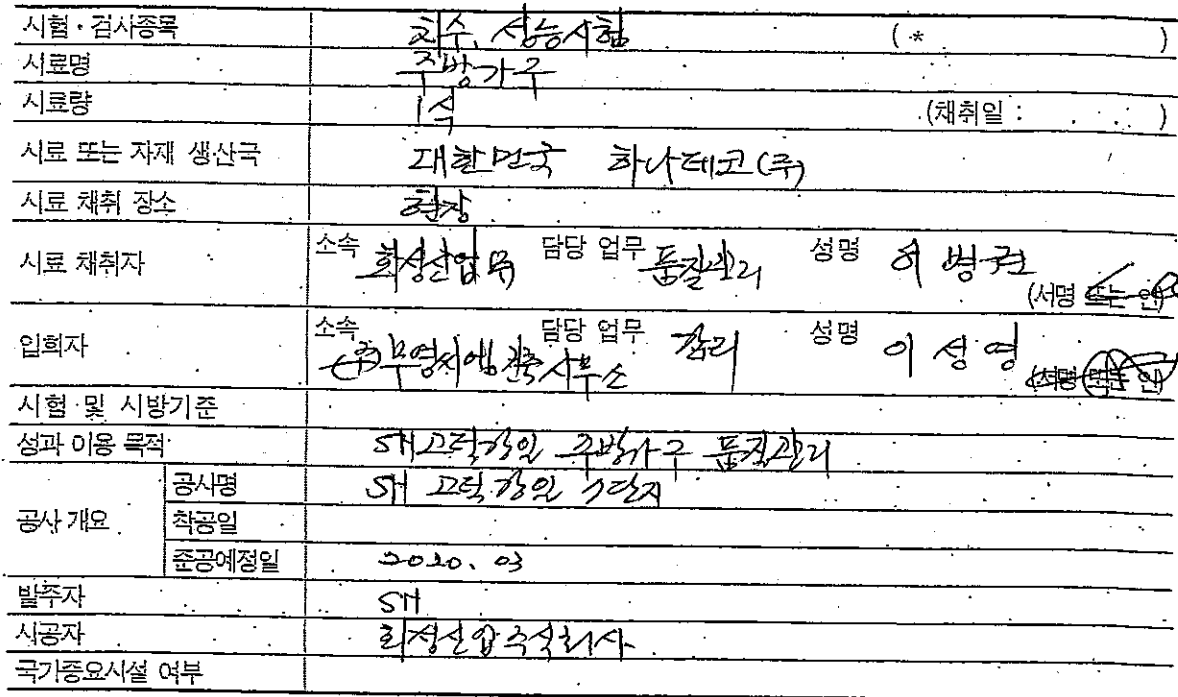 시험·검사종목 치수, 성능시험 ( * )
시료명 주방가구
시료량 1식 (채취일 : . . . )
시료 또는 자재 생산국 대한민국 하나데코(주)
시료 채취 장소 현장
시료 채취자 소속 화성산업㈜ 담당 업무 품질관리 성명 이병권
(서명 또는 인)
입회자 소속 (주)무영씨엠건축사무소 담당 업무 감리 성명 이성영
(서명 또는 인)
시험 및 시방기준
성과 이용 목적 SH고덕강일 주방가구 품질관리
공사 개요 공사명 SH 고덕강일 단지
착공일
준공예정일 2020. 03
발주자 SH
시공자 화성산업주식회사
국가중요시설 여부